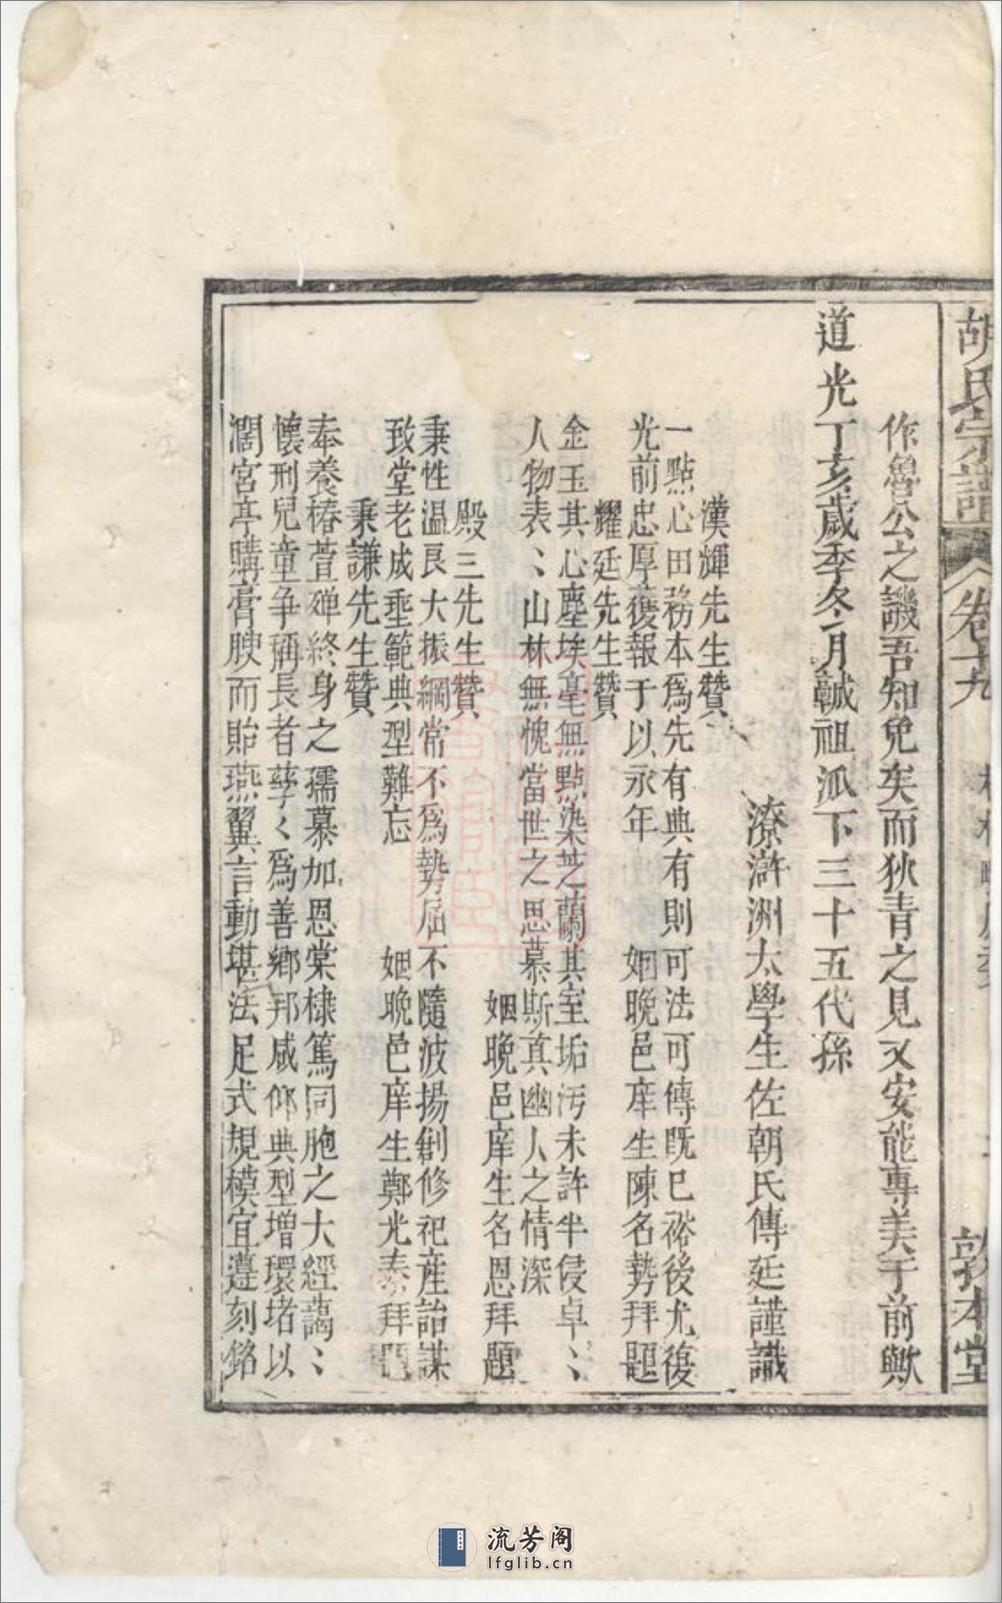 胡氏宗譜 卷十九 敦本堂
作魯公之譏吾知免矣而狄青之見又安能專美于前歟
道光丁亥歲季冬月誠祖派下三十五代孫
潦滸洲太學生佐朝氏傳廷謹識
漢輝先生贊
一點心田務本爲先有典有則可法可傳既已裕後尤復
光前忠厚獲報于以永年 姻晚邑庠生陳名勢拜題
耀廷先生贊
金玉其心塵埃毫無點染芝蘭其室垢污未許半侵卓〻
人物表〻山林無愧當世之思慕斯真幽人之情深
姻晚邑庠生名恩拜題
殿三先生贊
秉性溫良大振綱常不爲勢屈不隨波揚創修祀產詒謀
致堂老成垂範典型難忘 姻晚邑庠生鄭光泰拜題
秉謙先生贊
奉養椿萱殫終身之孺慕加恩棠棣篤同胞之大經藹〻
懷刑兒童争稱長者孳〻爲善鄉邦咸仰典型增環堵以
濶宮亭購膏腴而貽燕翼言動堪法足式規模宜遵刻銘
流芳阁
lfglib.cn